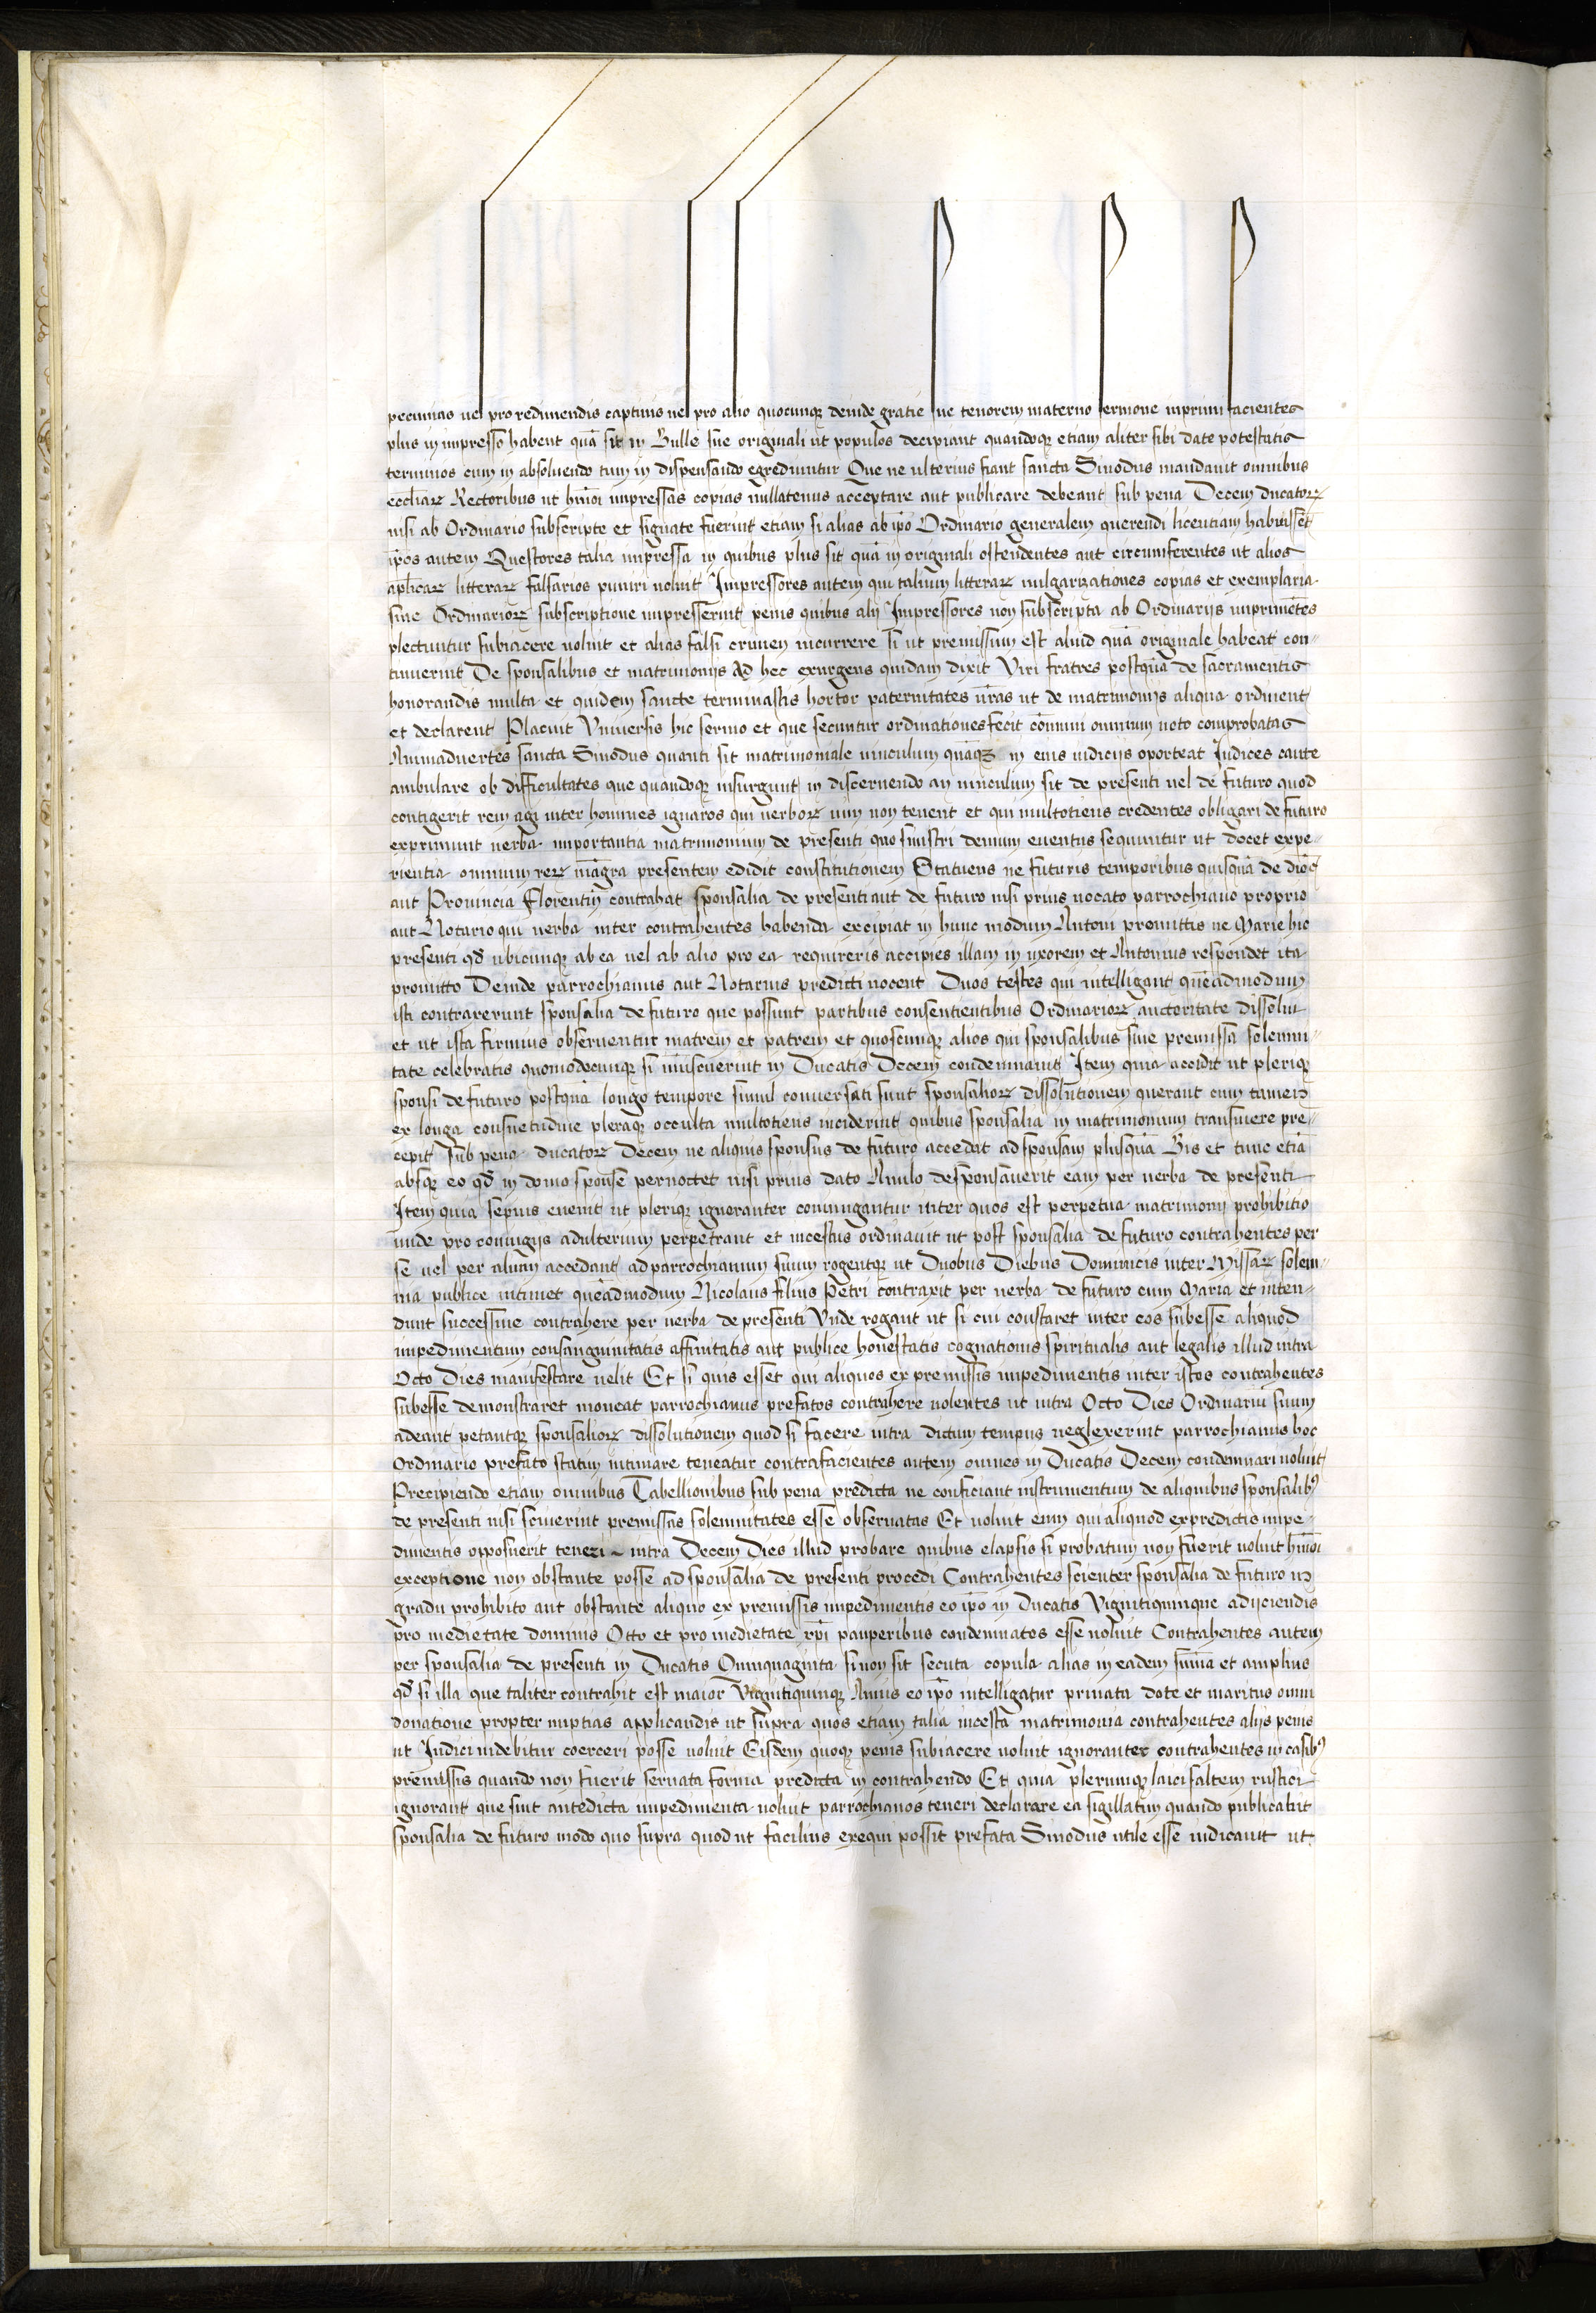 pecunias uel pro redimendis captiuis uel pro alio quocunqꝫ deinde gratie sue tenorem materno sermone imprimi facientes
plus in impresso habent quā sit in Bulle sue originali ut populos decipiant quandoqꝫ etiam aliter sibi date potestatis
terminos cum in absoluendo tum in dispensando egrediuntur Que ne ulterius fiant sancta Sinodus mandauit omnibus
eccliaꝝ Rectoribus ut hmōi impressas copias nullatenus acceptare aut publicare debeant sub pena Decem ducatoꝝ
nisi ab Ordinario subscripte et signate fuerint etiam si alias ab ipō Ordinario generalem querendi licentiam habuissēt
ip̄os autem Questores talia impressa in quibus plus sit quā in originali ostendentes aut circumferentes ut alios
aplicaꝝ litteraꝝ falsarios puniri uoluit Impressores autem qui talium litteraꝝ uulgarizationes copias et exemplaria
siue Ordinarioꝝ subscriptione impresserint penis quibus alij Impressores non subscripta ab Ordinarijs imprimētes
plectuntur subiacere uoluit et alias falsi crimen incurrere si ut premissum est aliud quā originale habeat con-
tinuerint De sponsalibus et matrimonijs Ad hec exurgens quidam dixit Viri fratres postquā de sacramentis
honorandis multa et quidem sancte terminastis hortor paternitates ūras ut de matrimonijs aliqua ordinent
et declarent Placuit Vniuersis hic sermo et que secuntur ordinationes fecit cōmuni omnium uoto comprobatas
Animaduertēs sancta Sinodus quanti sit matrimoniale uinculum quāqꝫ in eius iudicijs oporteat Iudices caute
ambulare ob difficultates que quandoqꝫ insurgunt in discernendo an uinculum sit de presenti uel de futuro quod
contigerit rem agi inter homines ignaros qui uerboꝝ uim non tenent et qui multotiens credentes obligari de futuro
exprimunt uerba importantia matrimonium de presenti quo sinistri demum euentus sequuntur ut docet expe-
rientia omnium reꝝ māgra presentem edidit constitutionem Statuens ne futuris temporibus quisquā de diōc
aut Prouincia Florentin̄ contrahat sponsalia de presenti aut de futuro nisi prius uocato parrochiano proprio
aut Notario qui uerba inter contrahentes habenda excipiat in hunc modum Antoni promittis ne Marie hic
presenti qd̄ ubicunqꝫ ab ea uel ab alio pro ea requireris accipies illam in uxorem et Antonius respondet ita
promitto Deinde parrochianus aut Notarius predicti uocent Duos testes qui intelligant quēadmodum
isti contraxerunt sponsalia de futuro que possunt partibus consentientibus Ordinarioꝝ auctoritate dissolui
et ut ista firmius obseruentur matrem et patrem et quoscunqꝫ alios qui sponsalibus siue premissa solemni-
tate celebratis quomodocunqꝫ se imiscuerint in Ducatis Decem condemnauit Item quia accidit ut pleriqꝫ
sponsi de futuro postquā longo tempore simul conuersati sunt sponsalioꝝ dissolutionem querant cum tamen
ex longa consuetudine pleraqꝫ occulta multotiens inciderint quibus sponsalia in matrimonium transiuere pre-
cepit sub pena ducatoꝝ Decem ne aliquis sponsus de futuro accedat ad sponsam plusquā Bis et tunc etiā
absqꝫ eo qd̄ in domo sponse pernoctet nisi prius dato Anulo desponsauerit eam per uerba de presenti
Item quia sepius euenit ut pleriqꝫ ignoranter coniungantur inter quos est perpetua matrimonij prohibitio
unde pro coniugijs adulterium perpetrant et incestus ordinauit ut post sponsalia de futuro contrahentes per
se uel per alium accedant ad parrochianum suum rogentqꝫ ut Duobus Diebus Dominicis inter Missaꝝ solem-
nia publice intimet quēadmodum Nicolaus filius Petri contraxit per uerba de futuro cum Maria et inten-
dunt successiue contrahere per uerba de presenti Vnde rogant ut si cui constaret inter eos subesse aliquod
impedimentum consanguinitatis affinitatis aut publice honestatis cognationis spiritualis aut legalis illud intra
Octo Dies manifestare uelit Et si quis esset qui aliquos ex premissis impedimentis inter istos contrahentes
subesse demonstraret moneat parrochianus prefatos contrahere uolentes ut intra Octo Dies Ordinariū suum
adeant petantqꝫ sponsalioꝝ dissolutionem quod si facere intra dictum tempus neglexerint parrochianus hoc
Ordinario prefato statim intimare teneatur contrafacientes autem omnes in Ducatis Decem condemnari uoluit
Precipiendo etiam omnibus Tabellionibus sub pena predicta ne conficiant instrumentum de aliquibus sponsalibꝰ
de presenti nisi sciuerint premissas solemnitates esse obseruatas Et uoluit eum qui aliquod ex predictis impe-
dimentis opposuerit teneri intra Decem Dies illud probare quibus elapsis si probatum non fuerit uoluit hmōi
exceptione non obstante posse ad sponsalia de presenti procedi Contrahentes scienter sponsalia de futuro in
gradu prohibito aut obstante aliquo ex premissis impedimentis eo ipō in Ducatis Vigintiquinque adijciendis
pro medietate dominis Octo et pro medietate xp̄i pauperibus condemnatos esse uoluit Contrahentes autem
per sponsalia de presenti in Ducatis Quinquaginta si non sit secuta copula alias in eadem sūma et amplius
qd̄ si illa que taliter contrahit est maior Vigintiquinqꝫ Annis eo ipō intelligatur priuata dote et maritus omni
donatione propter nuptias applicandis ut supra quos etiam talia incesta matrimonia contrahentes alijs penis
ut Iudici uidebitur coerceri posse uoluit Eisdem quoqꝫ penis subiacere uoluit ignoranter contrahentes in casibꝰ
premissis quando non fuerit seruata forma predicta in contrahendo Et quia plerumqꝫ laici saltem rustici
ignorant que sint antedicta impedimenta uoluit parrochianos teneri declarare ea sigillatim quando publicabūt
sponsalia de futuro modo quo supra quod ut facilius exequi possit prefata Sinodus utile esse iudicauit ut